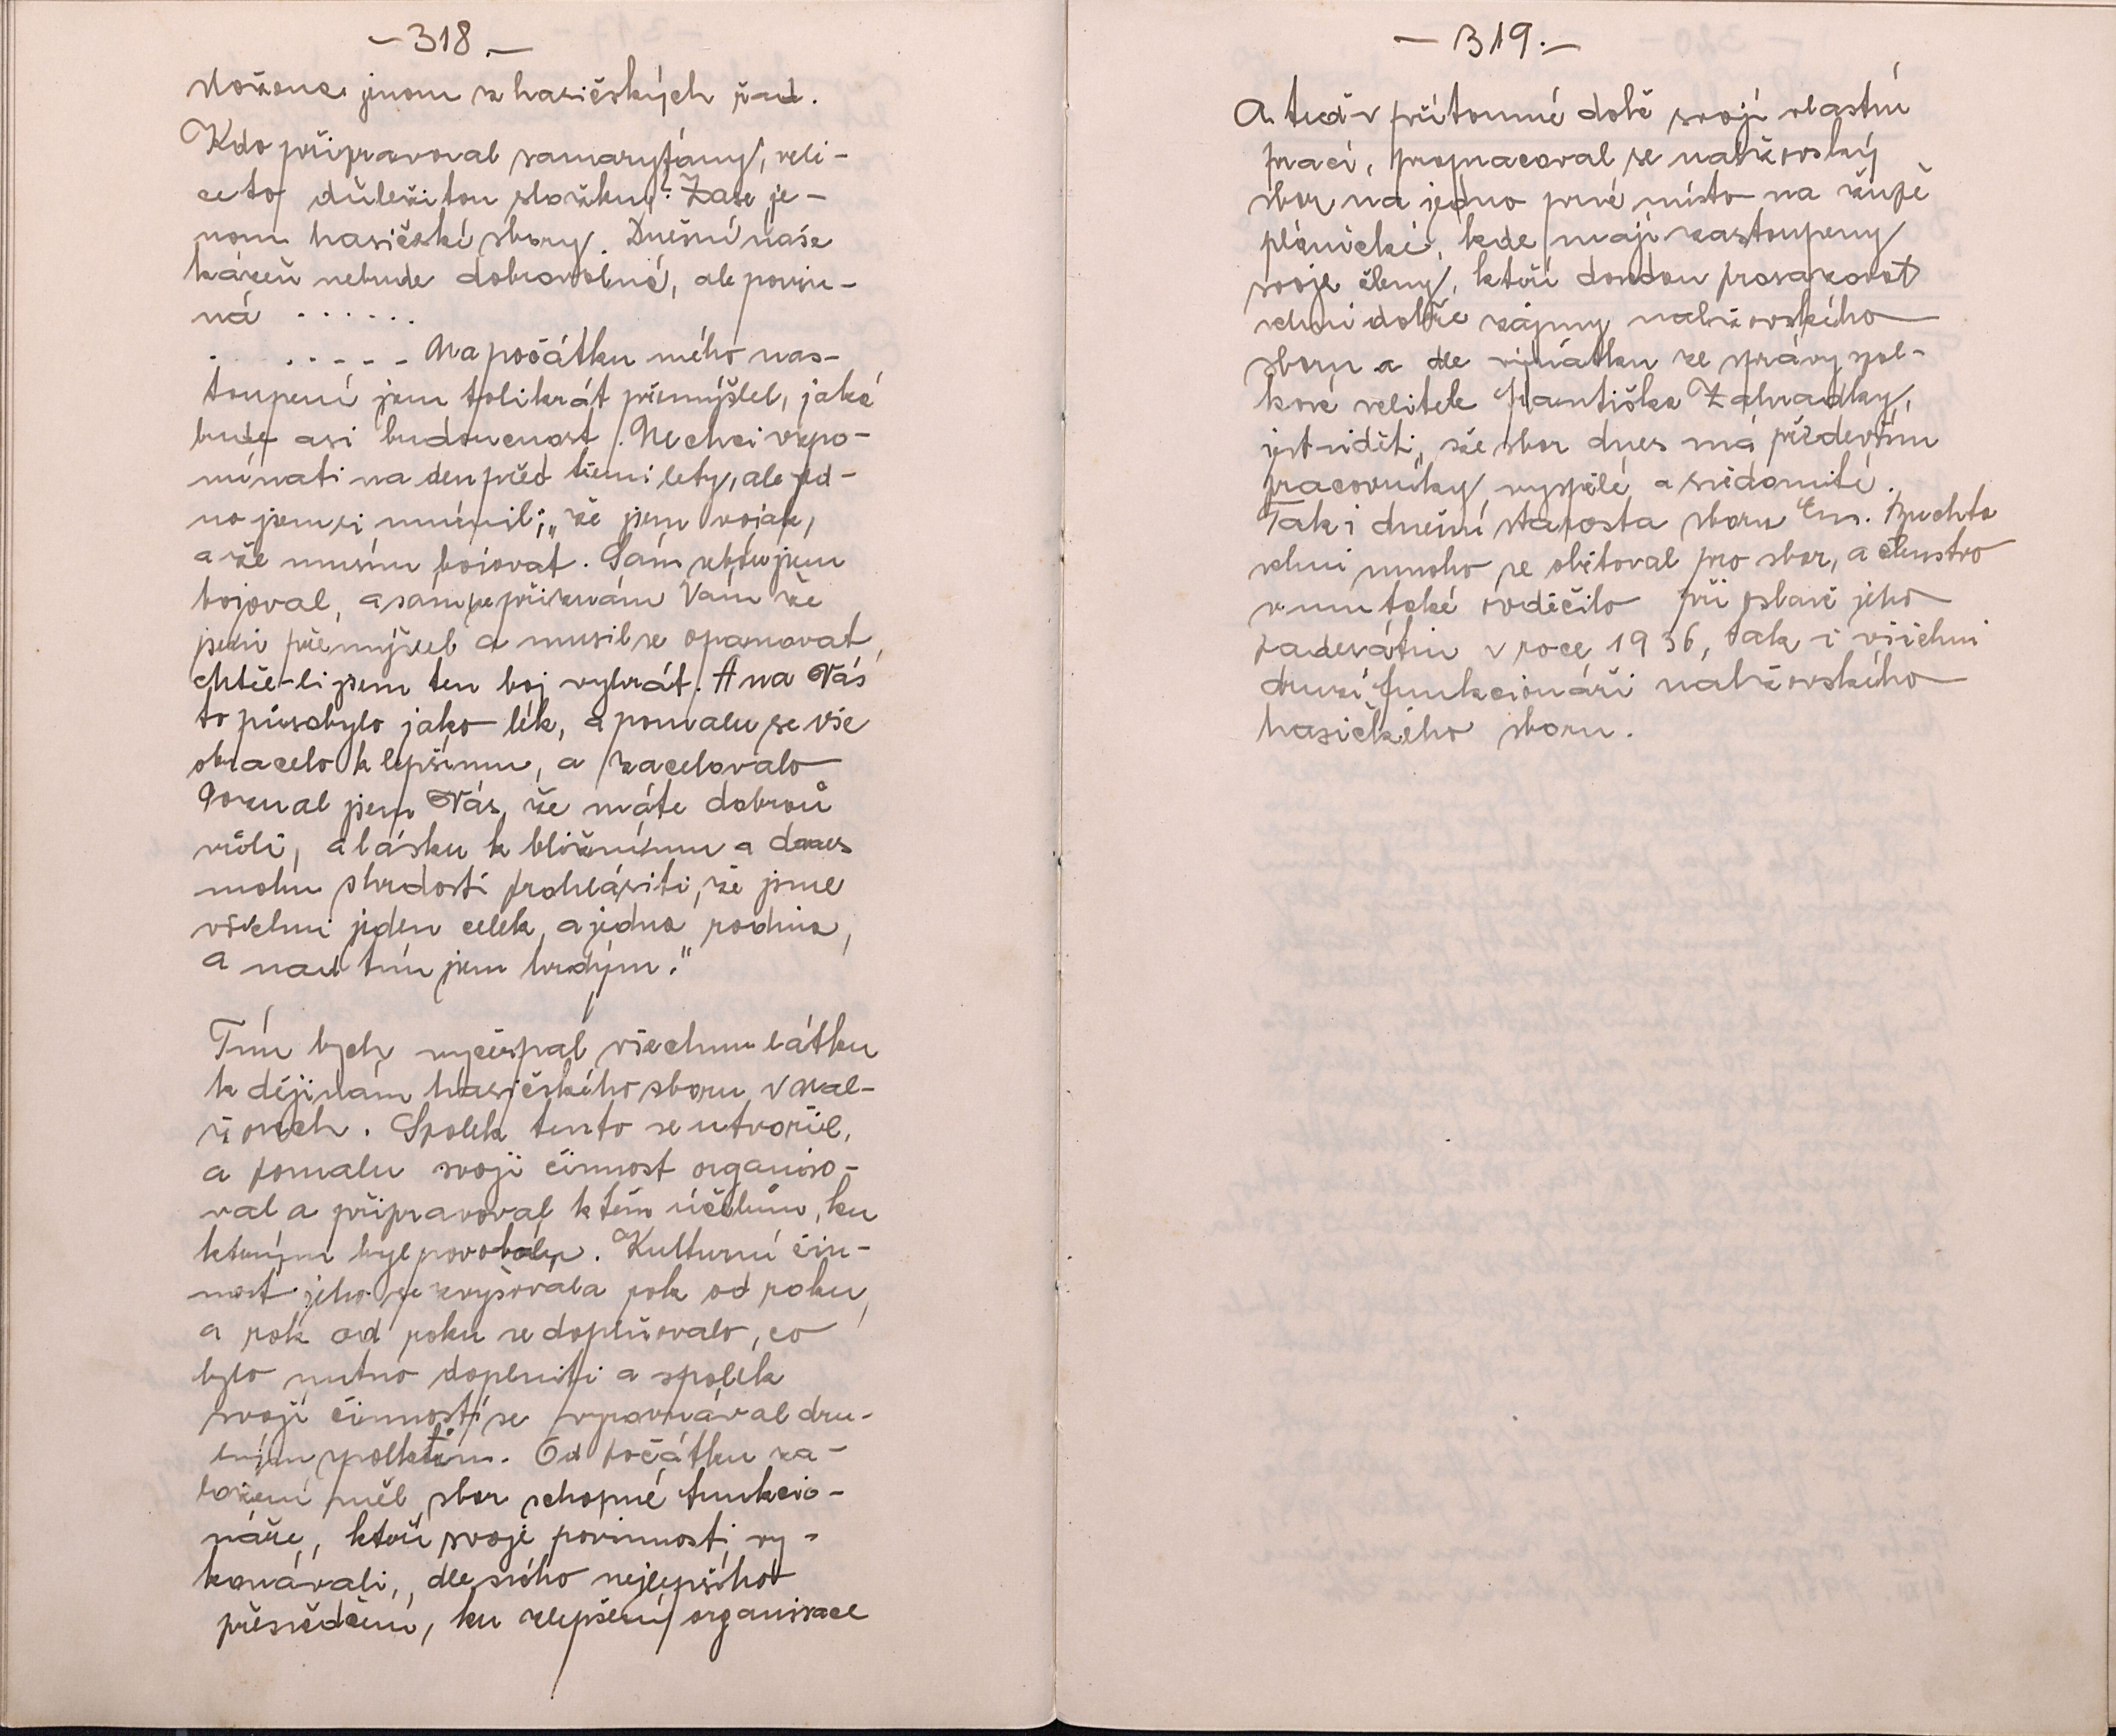 - 318. -
složena jenom z hasičských řad.
Kdo připravoval samarytány, veli-
ce to důležitou složku? Zase je-
nom hasičské sbory. Dnešní naše
kázeň nebude dobrovolná, ale povin-
ná ......
. ..... Na počátku mého nas-
toupení jsem tolikrát přemýšlel, jaká
bude asi budoucnost. Nechci vzpo-
mínati na den před třemi lety, ale jed-
no jsem si umínil; „že jsem voják,
a že musím bojovat. Sám sebou jsem
bojoval, a sám se přiznám Vám že
jsem přemýšlel a musil se opanovat,
chtěl-li jsem ten boj vyhrát. A na Vás
to působylo jako lék, a pomalu se vše
obracelo k lepšímu, a zacelovalo
Poznal jsem Vás, že máte dobrou
vůli, a lásku k bližnímu a dnes
mohu s hrdostí prohlásiti, že jsme
všichni jeden celek, a jedna rodina,
a nad tím jsem hrdým."
Tím bych vyčerpal všechnu látku
k dějinám hasičského sboru v Nal-
žovech. Spolek tento se utvořil,
a pomalu svoji činnost organiso-
val a připravoval k těm účelům, ku
kterým byl povolán. Kulturní čin-
nost jeho se zvyšovala rok od roku,
a rok od roku se doplňovalo, co
bylo nutno doplniti a spolek
svojí činností se vyrovnával dru-
hým spolkům. Od počátku za-
ložení měl sbor schopné funkcio-
náře, kteří svoje povinnosti vy-
konávali, dle svého nejlepšího
přesvědčení, ku zlepšení organisace
- 319. -
A teď v přítomné době svojí vlastní
prací, propracoval se nalžovský
sbor na jedno prvé místo na župě
plánické, kde mají zastoupeny
svoje členy, kteří dovedou prosazovat
velmi dobře zájmy nalžovského
sboru a dle výňatku ze zprávy spol-
kové velitele Františka Zahradky,
jest viděti, že sbor dnes má především
pracovníky vyspělé a svědomité.
Tak i dnešní starosta sboru Em. Buchta
velmi mnoho se obětoval pro sbor, a členstvo
mu také vděčilo při oslavě jeho
padesátin v roce 1936, tak i všichni
druzí funkcionáři nalžovského
hasičského sboru.